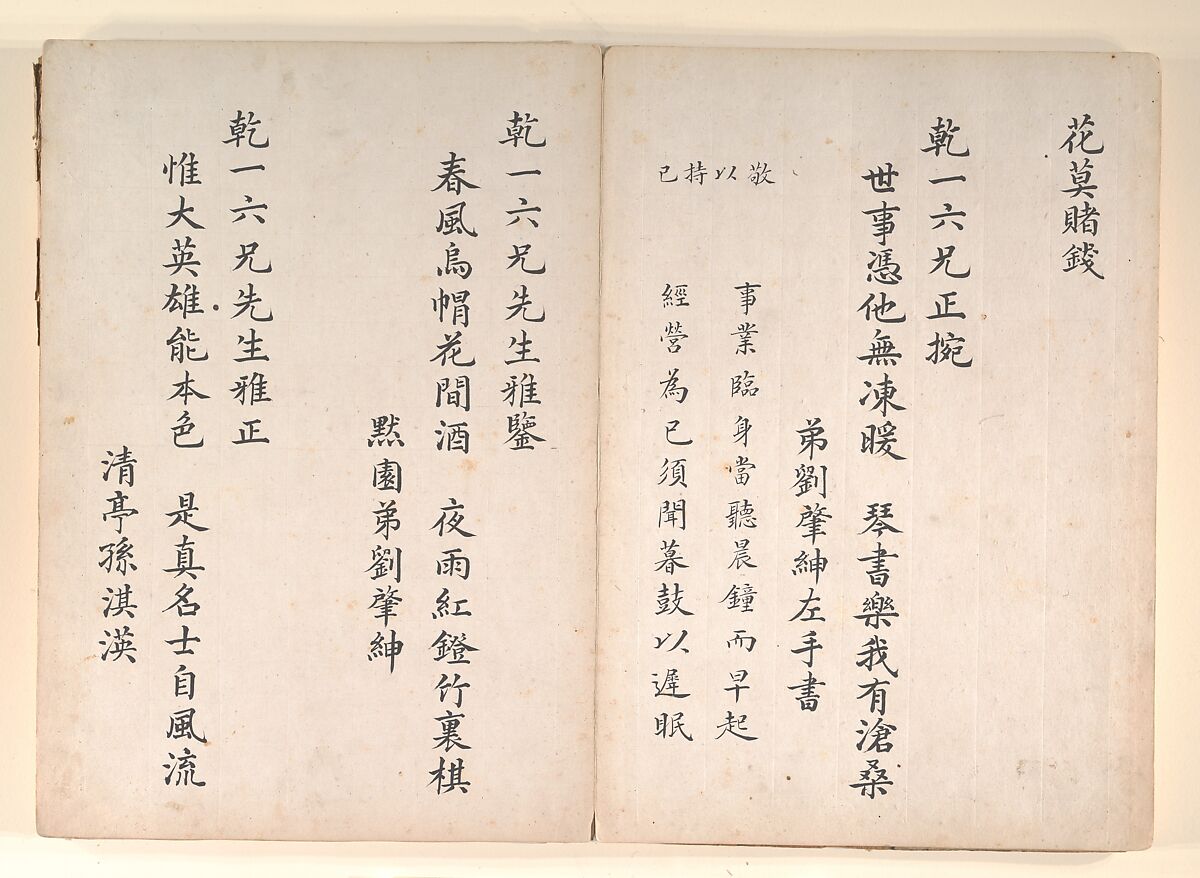 花莫賭錢
乾一六兄正捥
世事憑他無凍暖　琴書樂我有滄桑
弟劉肇紳左手書
敬以持已
事業臨身當聽晨鐘而早起
經營為已須聞暮鼓以遲眠
乾一六兄先生雅鑒
春風烏帽花間酒　夜雨紅鐙竹裏棋
黙園弟劉肇紳
乾一六兄先生雅正
惟大英雄能本色　是真名士自風流
清亭孫淇渶